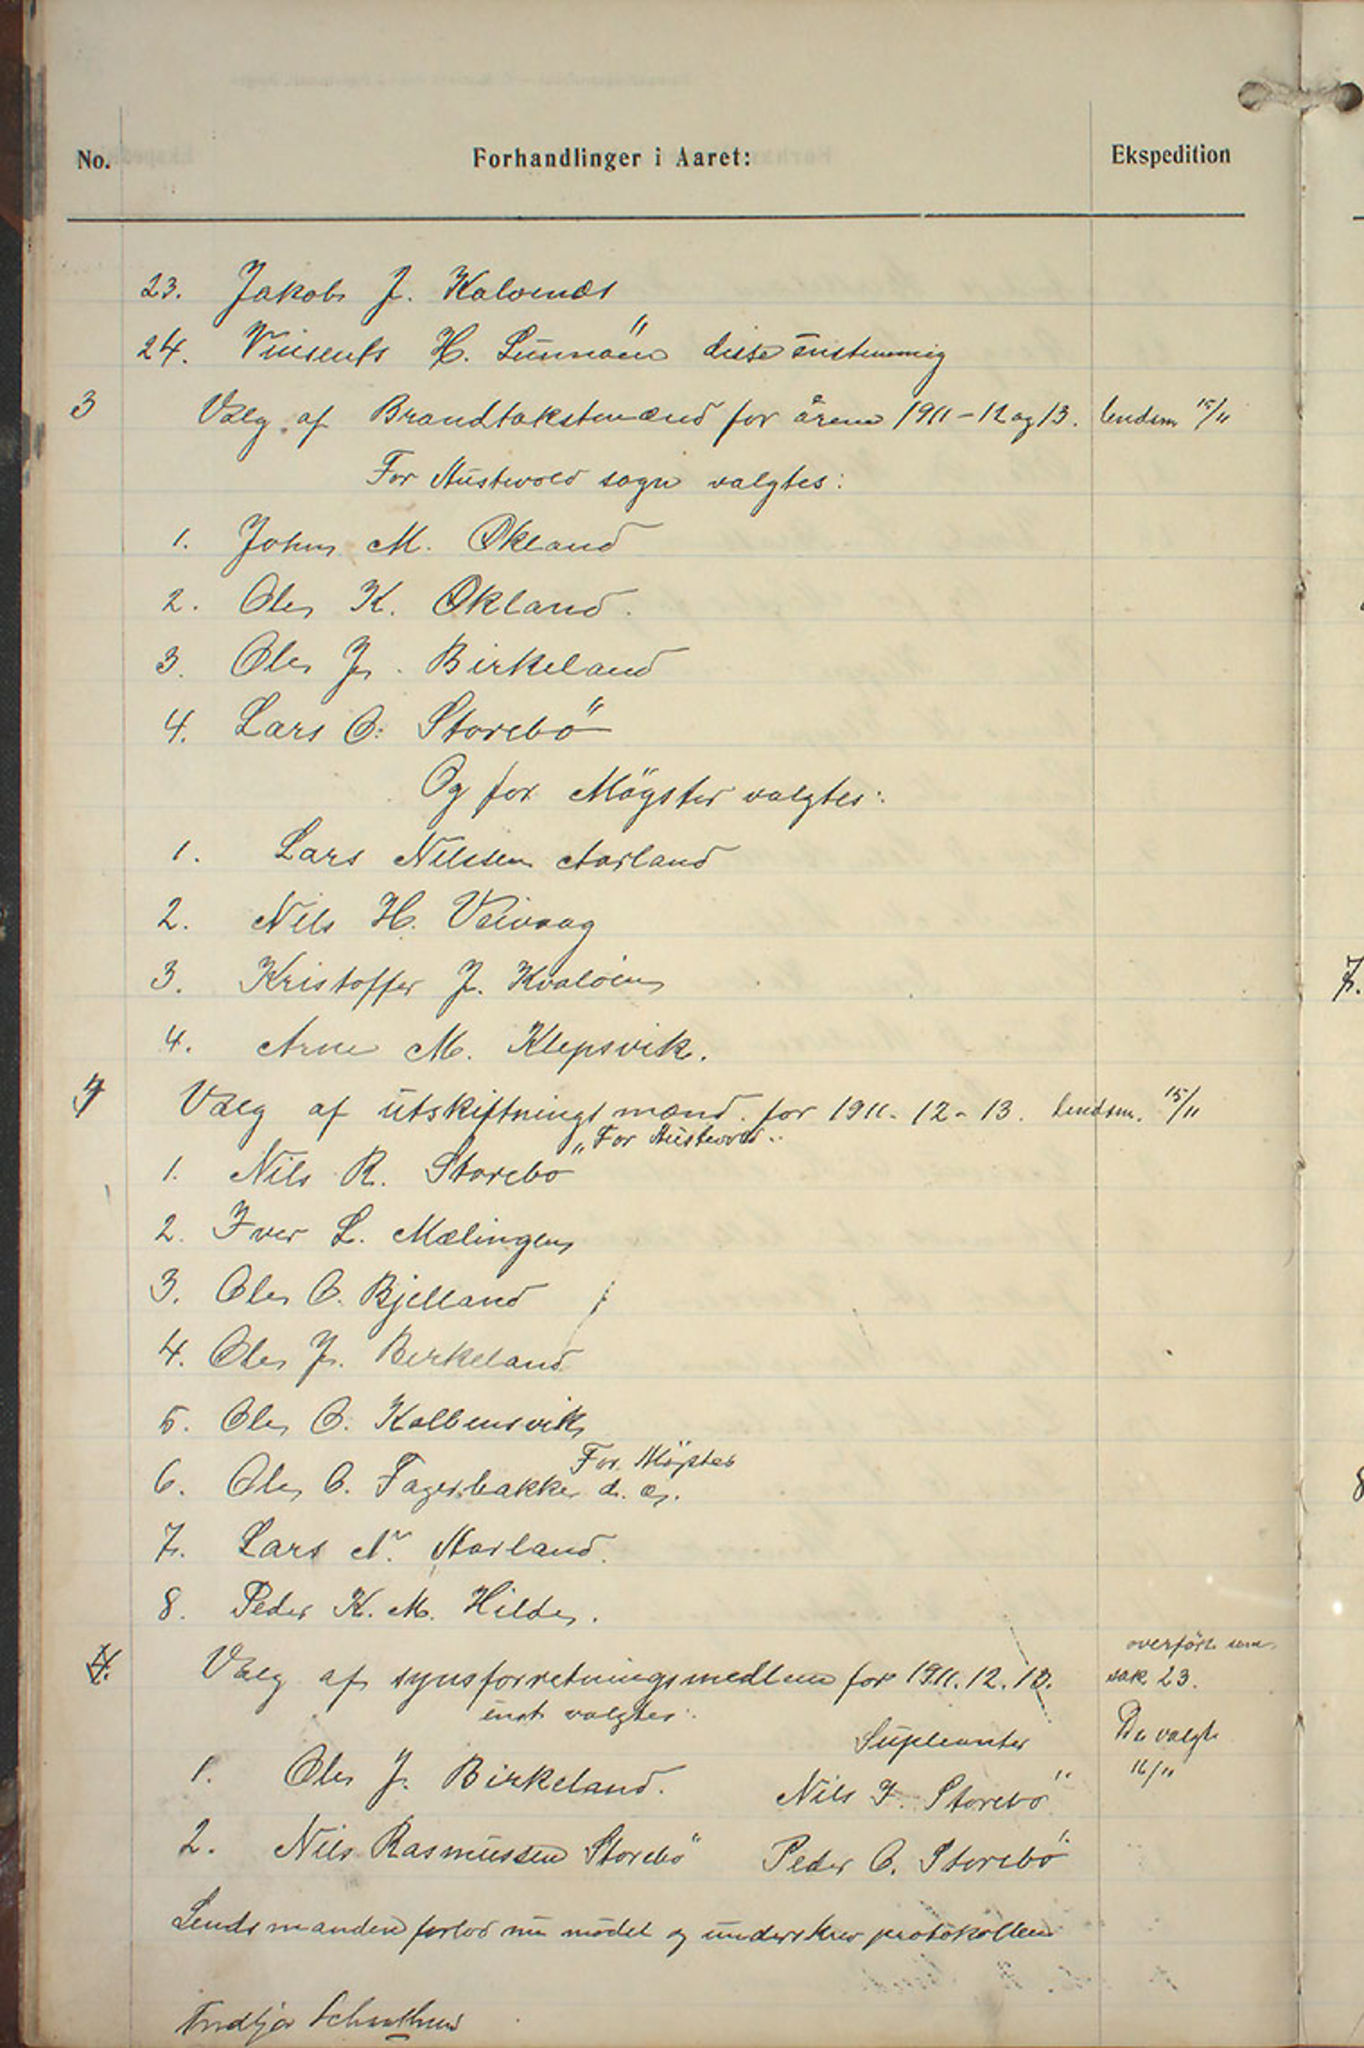 No. Forhandlinger i Aaret: Ekspedition
23. Jakob J. Kalvenæs
24. Vinsents H. Sunnöen disse enstemmig
3 Valg af Brandtakstmænd for årene 1911-12 og 13. lendsm 15/11
For Austevold sogn valgtes:
1. Johns M. Økland
2. Ole K. Økland.
3. Ole J. Birkeland
4. Lars O. Storebö
Og for Mögster valgtes:
1. Lars Nilssen Aarland
2. Nils H. Veivaag
3. Kristoffer J. Kvalöien
4. Arne M. Klepsvik.
4 Valg af utskiftningsmænd for 1911-12-13. lendsm. 15/11
For Austevold
1. Nils R. Storebö
2. Iver L. Mælingen
3. Ole O. Bjelland
4. Ole J. Berkeland
5. Ole O. Kolbensvik
For Mögster
6. Ole O. Fagerbakke d. æ.
7. Lars N. Aarland.
8. Peder K. M. Hilde.
overført som
4. Valg af synsforretningsmedlem for 1911.12.13. sak 23.
enst valgtes:
Supleanter De valgte
1. Ole J. Birkeland. Nils I. Storebö 16/11
2. Nils Rasmussen Storebö Peder O. Storebö
Lendsmanden forlod nu mödet og underskrev protokollen